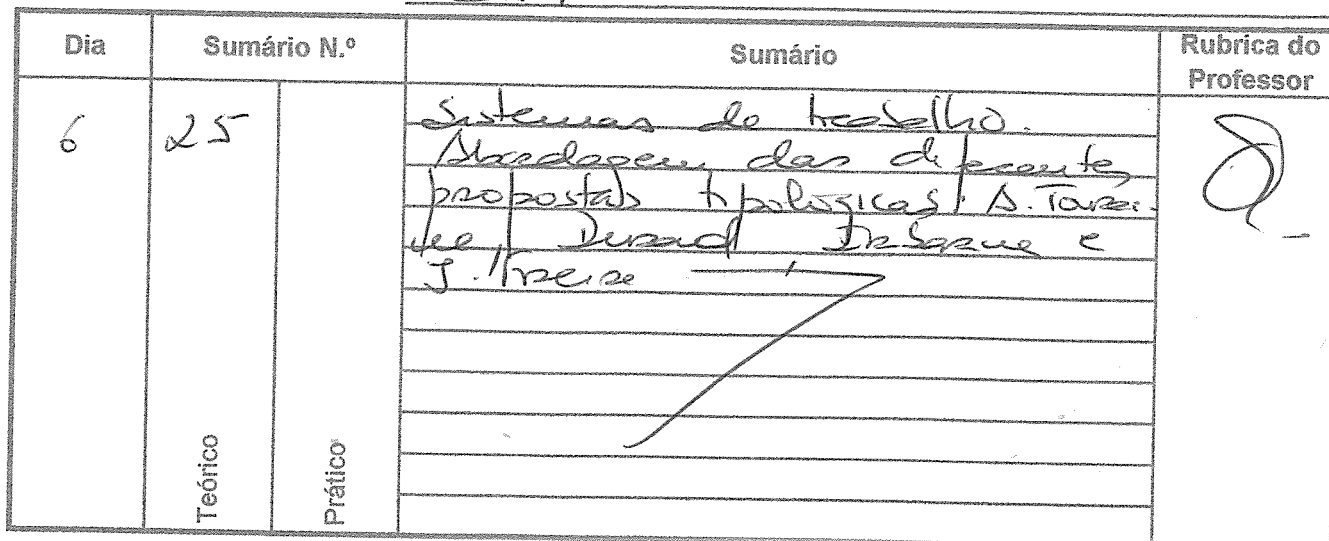 Dia Sumário N.º Sumário Rubrica do Professor
6 25 Sistemas de trabalho.
Abordagem das diferentes
propostas tipológicas: A. Tourai-
ne, Durand
J. Freire
Teórico
Prático